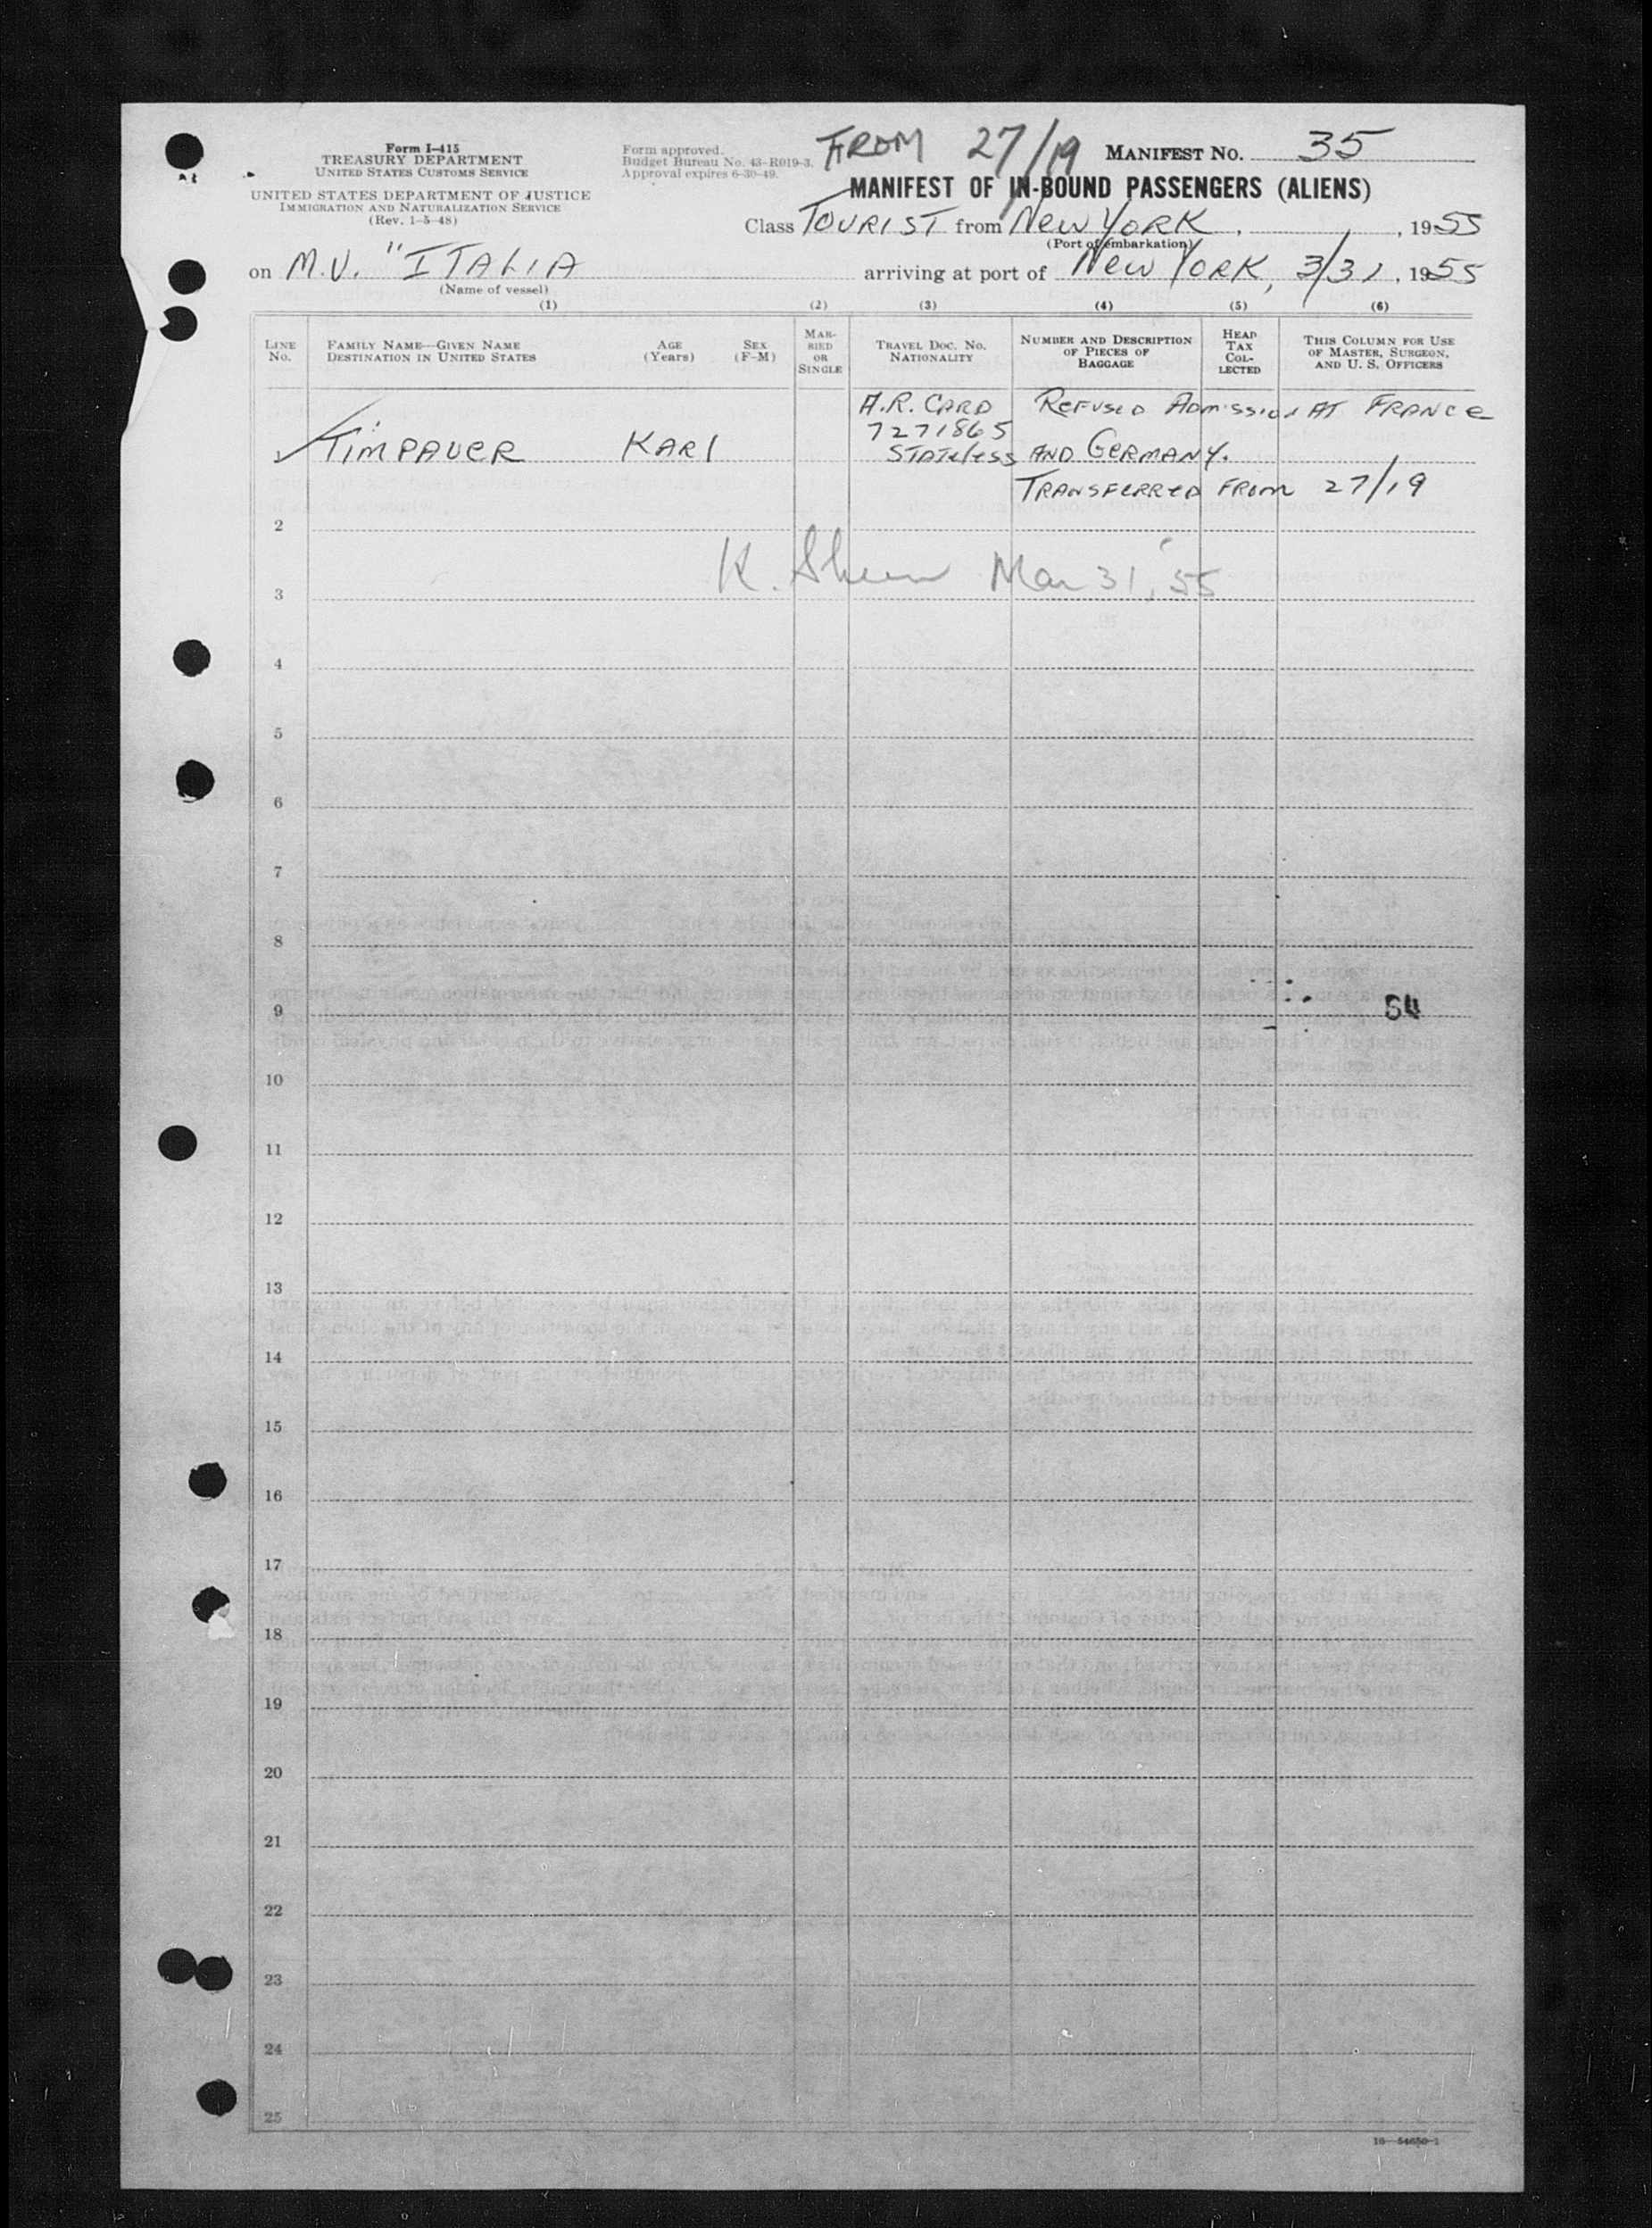 Form I-415
TREASURY DEPARTMENT
UNITED STATES CUSTOMS SERVICE
UNITED STATES DEPARTMENT OF JUSTICE
IMMIGRATION AND NATURALIZATION SERVICE
(Rev. 1-5-48)
Form approved.
Budget Bureau No. 43-R019-3.
Approval expires 6-30-49.
FROM 27/19
MANIFEST NO. 35
MANIFEST OF IN-BOUND PASSENGERS (ALIENS)
Class TOURIST from New YORK, , 1955
(Port of embarkation)
on M.V. "ITALIA arriving at port of New YORK, 3/31, 1955
(Name of vessel)
(1) (2) (3) (4) (5) (6)
LINE NO.
FAMILY NAME—GIVEN NAME
DESTINATION IN UNITED STATES
AGE (Years)
SEX (F-M)
MAR-RIED OR SINGLE
TRAVEL DOC. NO.
NATIONALITY
NUMBER AND DESCRIPTION OF PIECES OF BAGGAGE
HEAD TAX COL-LECTED
THIS COLUMN FOR USE OF MASTER, SURGEON, AND U. S. OFFICERS
A.R. CARD REFUSED ADMISSION AT FRANCE
7271865
TIMPAUER KARl STATeless AND GERMANY.
TRANSFERRED FROM 27/19
2
K. Mar 31, '55
3
4
5
6
7
8
9 64
10
11
12
13
14
15
16
17
18
19
20
21
22
23
24
25
16—54650-1